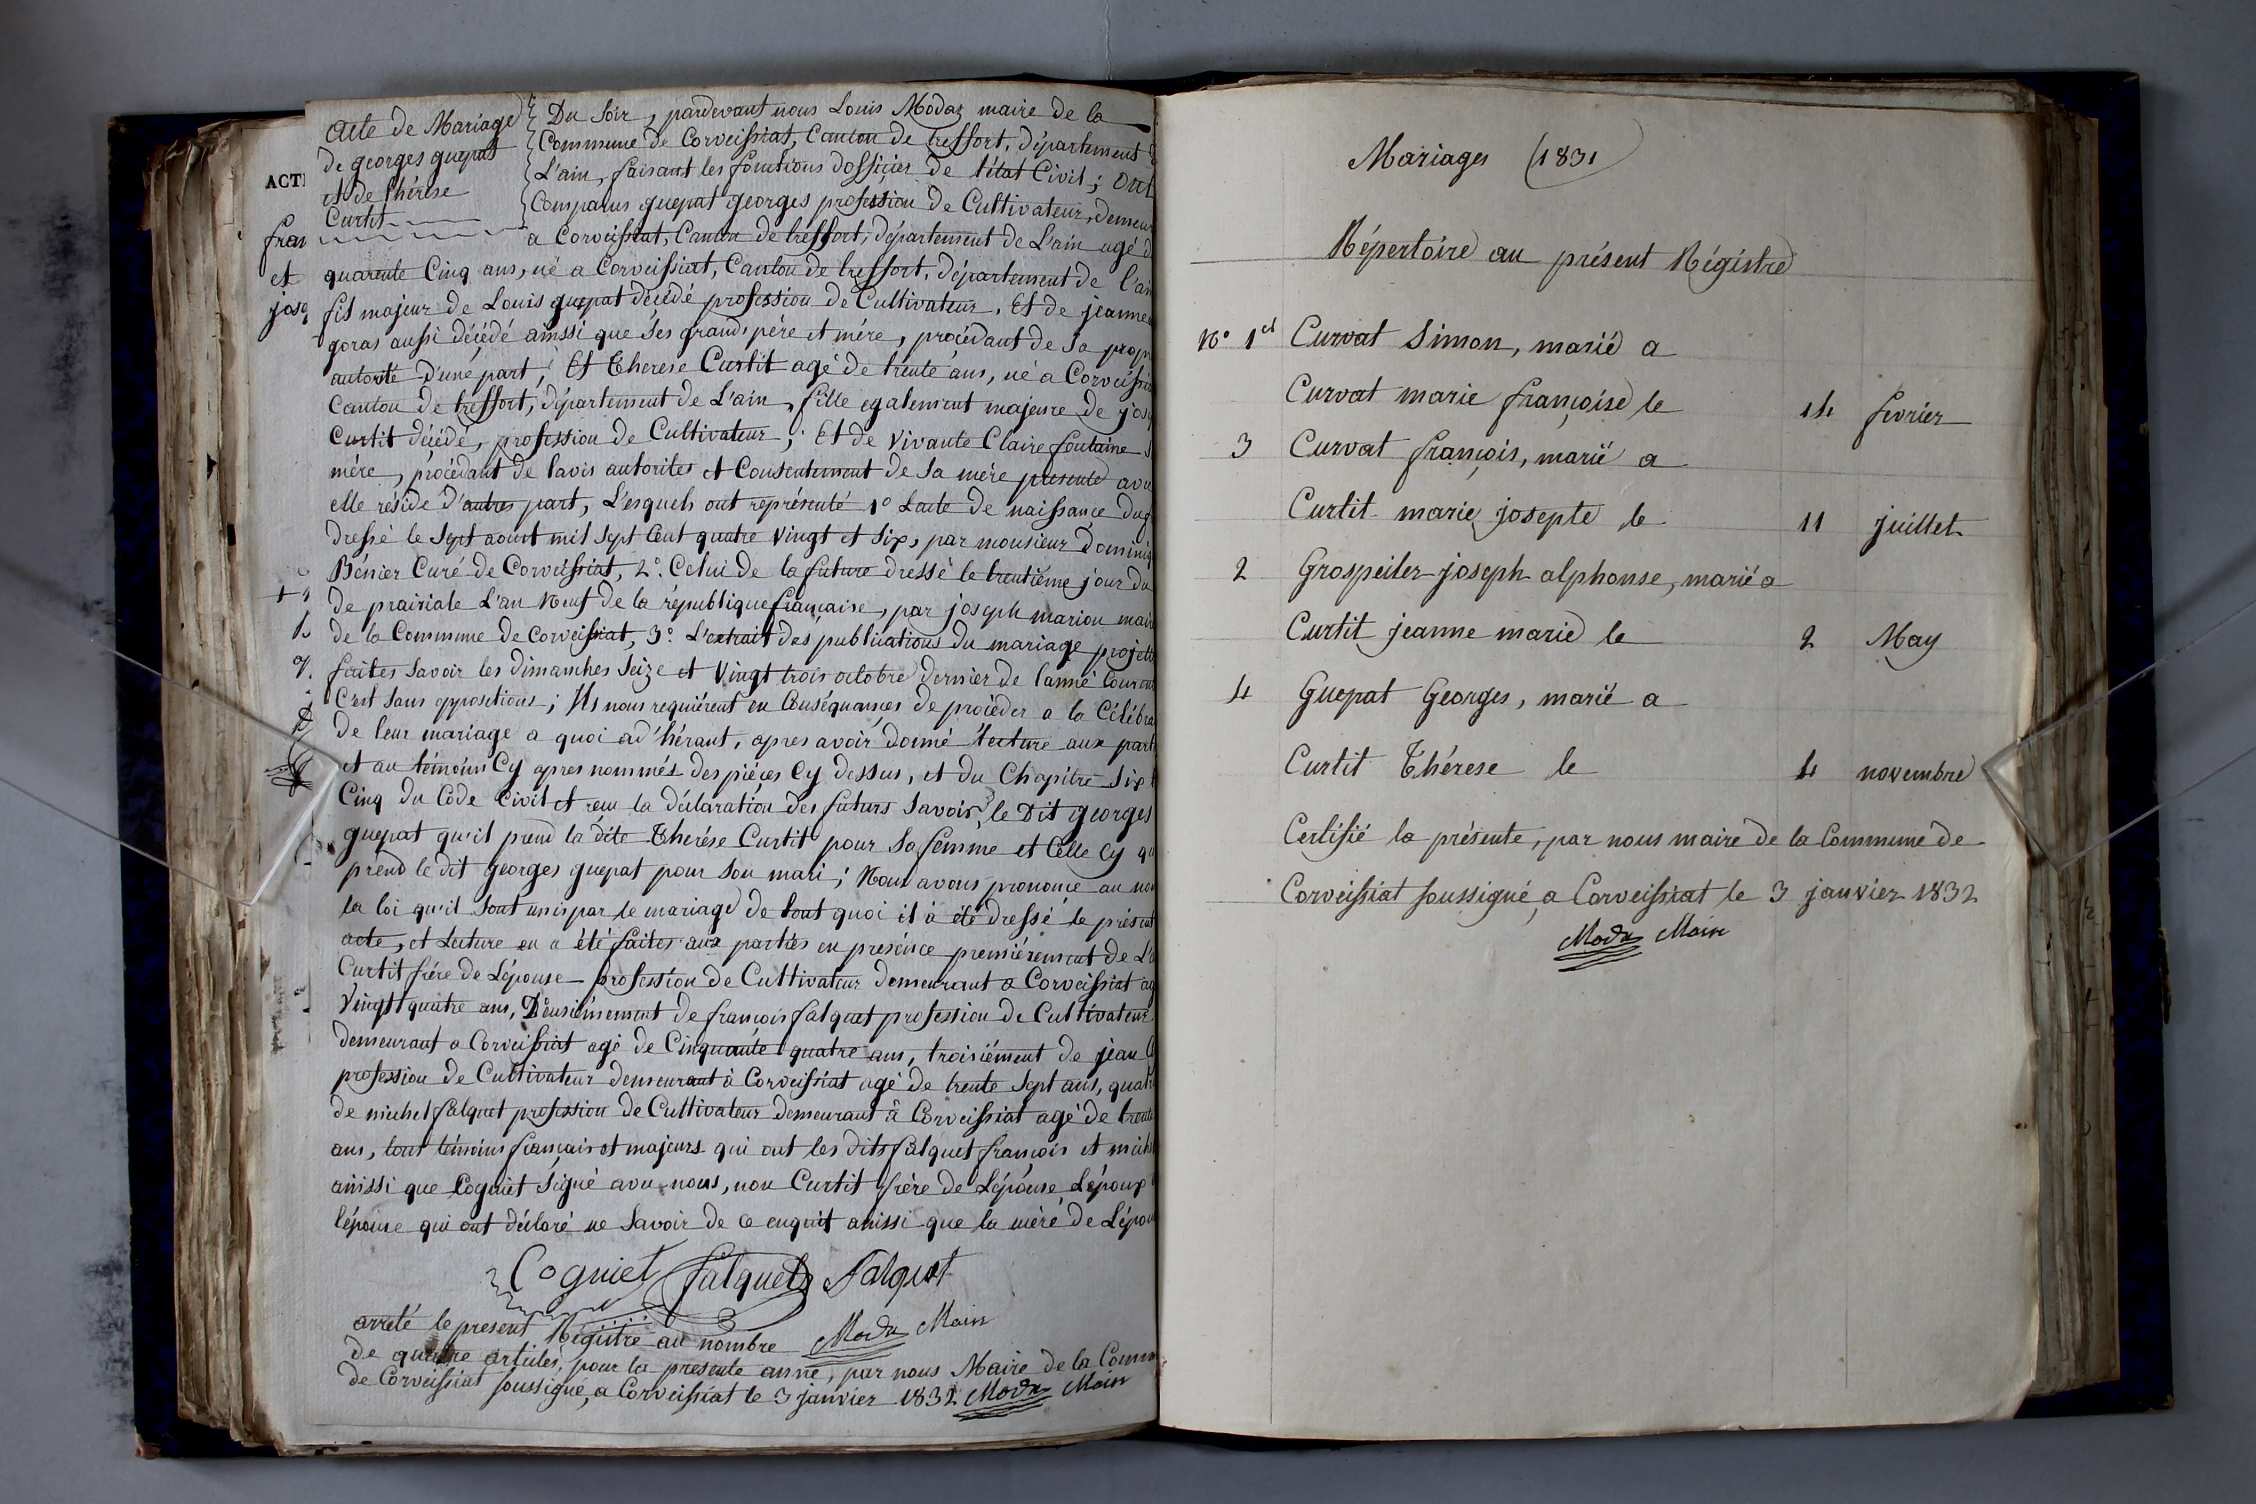 acte de Mariage
de georges guepat
et de thérèse
Curtit
ACT
fran
et
jose
Du Soir, pardevant nous Louis Modaz maire de la
Commune de Corveissiat, Canton de treffort, département
L'ain, faisant les fonctions dofficier de l'état Civil; Ont
Comparus guepat georges profession de Cultivateur, demeu
a Corveissiat, Canton de treffort, département de L'ain agé d
quarente Cinq ans, né a Corveissiat, Canton de treffort, département de l'ain
fils majeur de Louis guepat décédé profession de Cultivateur, Et de jeanne
goras aussi décédé ainssi que Ses grands père et mère, procédant de Sa prop
autorité d'une part, Et Therese Curtit agé de trente ans, né a Corveissi
Canton de treffort, département de L'ain, fille egalement majeure de jos
Curtit décédé, profession de Cultivateur; Et de vivante Claire fontaine S
mére, procédant de lavis autorites et Consentement de Sa mère présente ave
elle réside d'autres part, L'esquels ont représenté 1° Lacte de naissance du
dressé le Sept aoust mil Sept Cent quatre vingt et Six, par monsieur Domini
Bénier Curé de Corveissiat, 2°. Celui de la future dressé le trentième jour du
de prairiale L'an Neuf de la république française, par joseph marion mair
de la Commune de Corveissiat, 3° L'extrait des publications du mariage projett
faites Savoir les dimanches Seize et vingt trois octobre dernier de lanné Couran
C'est Sans oppositions; Ils nous requiérent en Conséquances de procéder a la Célébra
de leur mariage a quoi ad'hérant, apres avoir donné lecture aux part
et au témoins Cy apres nommés des pièces Cy dessus, et du Chapitre Six
Cinq du Code Civil et reçu la déclaration des futurs Savoir, le Dit georges
guepat qu'il prend la dite Thérèse Curtit pour Sa femme et Celle Cy qu
prend le dit georges guepat pour Son mari; Nous avons prononcé au no
la loi qu'il Sont unis par le mariage de tout quoi il à été dressé le présent
acte, et Lecture en a été faites aux parties en présence premièrement de L
Curtit frére de L'épouse profession de Cultivateur demeurant a Corveissiat ag
vingt quatre ans, Deusièmement de françois falquet profession de Cultivateur
demeurant a Corveissiat agé de Cinquante quatre ans, troisiément de jean C
profession de Cultivateur demeurant à Corveissiat agé de trente Sept ans, quat
de michel falquet profession de Cultivateur demeurant à Corveissiat agé de trente
ans, tout témoins français et majeurs qui ont les dits falquet françois et mich
ainssi que Cogniet Signé avec nous, non Curtit frère de L'épouse, L'époux
l'épouse qui ont déclaré ne Savoir de ce enquit ainssi que la mère de L'épou
Cogniet falquet falquet
Modaz Maire
arreté le present Régistre au nombre
de quatre articles, pour la presente anné, par nous Maire de la Comm
de Corveissiat Soussigné, a Corveissiat le 3 janvier 1832 Modaz Maire
Mariages (1831)
Répertoire au présent Régistre
N° 1er Curvat Simon, marié a
Curvat marie françoise le 14 fevrier
3 Curvat françois, marié a
Curtit marie josepte le 11 juillet
2 Grospeiler joseph alphonse, marié a
Curtit jeanne marie le 2 May
4 Guepat Georges, marié a
Curtit Thérese le 4 novembre
Certifié la présente, par nous maire de la Commune de
Corveissiat Soussigné, a Corveissiat le 3 janvier 1832
Modaz Maire